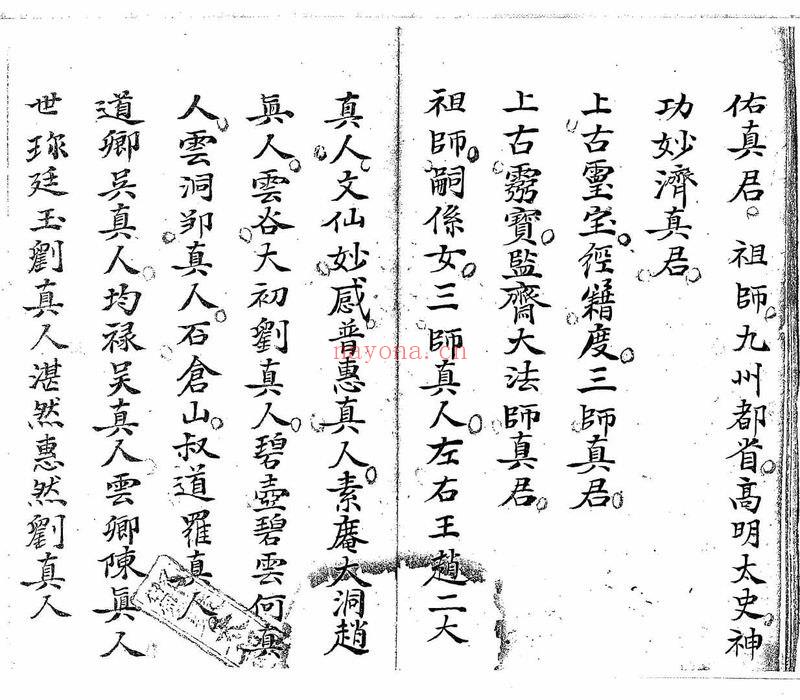 佑真君。祖師九州都省高明太史神
功妙濟真君
上古靈宝經籍度三師真君
上古靈寶監齋大法師真君
祖師嗣係女三師真人左右王趙二大
真人文仙妙感普惠真人素庵大洞趙
真人雲谷大初劉真人碧壺碧雲何真
人雲洞邹真人石倉山叔道羅真人
道卿吳真人均禄吴真人雲卿陳真人
世珎廷玉劉真人湛然惠然劉真人
nayona.cn